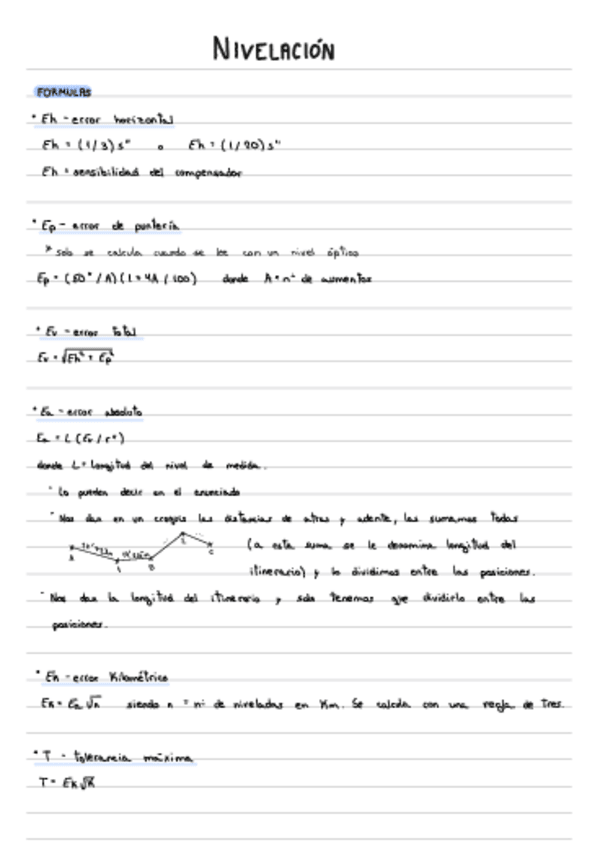 NIVELACIÓN
FORMULAS
* Eh - error horizontal
Eh = (1/3) s" o Eh = (1/20) s"
Eh = sensibilidad del compensador
* Ep - error de puntería
* solo se calcula cuando se lee con un nivel óptico
Ep = (50" / A) (1 + 4A / 100) donde A = nº de aumentos
* Ev - error total
Ev = √Eh² + Ep²
* Ea - error absoluto
Ea = L (Ev / r")
donde L = longitud del nivel de medida.
- Lo pueden decir en el enunciado
- Nos dan en un croquis las distancias de atras y adente, las sumamos todas
(a esta suma se le denomina longitud del
A 1 B 2 C
itinerario) y lo dividimos entre las posiciones.
- Nos dan la longitud del itinerario y solo tenemos que dividirlo entre las
posiciones.
* Ek - error Kilométrico
Ek = Ea √n siendo n = nº de niveladas en Km. Se calcula con una regla de tres.
* T - tolerancia máxima
T = Ek √K